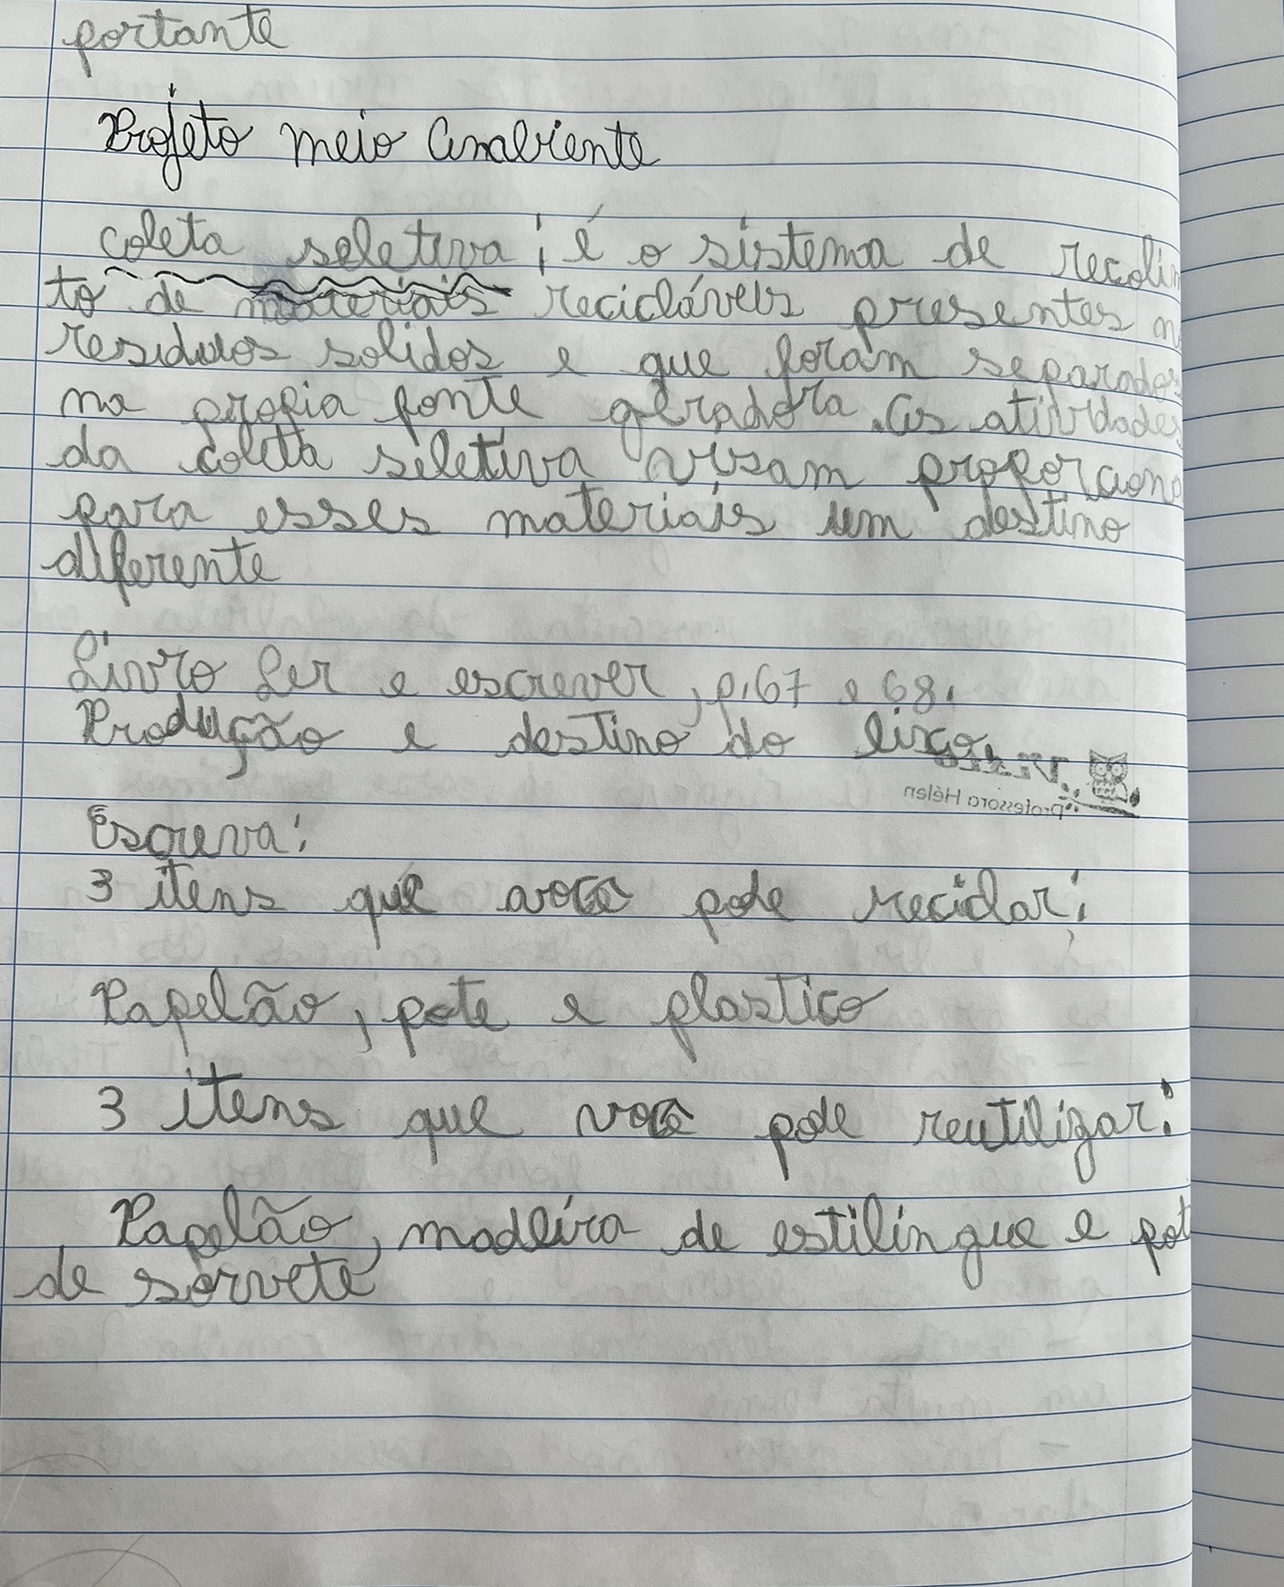 portante
Projeto meio Ambiente
coleta seletiva; é o sistema de recolin
to de materiais recicláveis presentes n
residuos solidos e que foram separados
na propia fonte geradora. As atividades
da coleta seletiva visam proporciona
para esses materiais um destino
diferente
Livro Ler e escrever, p.67 e 68.
Produção e destino do lixo.
Visto
Professora Hélen
Escreva:
3 itens que você pode reciclar:
Papelão, pote e plastico
3 itens que você pode reutilizar:
Papelão, madeira de estilingue e pot
de sorvete